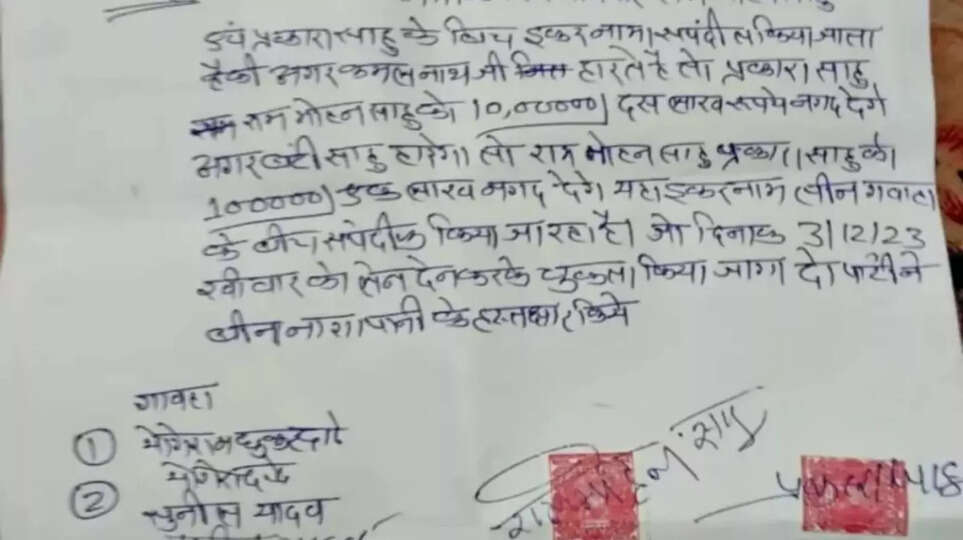 एवं प्रकाश साहु के बिच इकरनामा संपादीत किया जाता
हैकी अगर कमलनाथ जी हारते है तो प्रकाश साहु
राम मोहन साहु को 10,00000/ दस लाख रूपये नगद देगे
अगर बंटी साहु हारेगा तो राम मोहन साहु प्रकाश साहु को
100000/ एक लाख नगद देगे यहा इकरनाम तीन गवाहा
के बीच संपादीक किया जा रहा है। जो दिनाक 3/12/23
रवीवार को लेन देन करके चुकता किया जागा दो पार्टी ने
बीन नाशा पानी के हस्ताक्षर किये
गावहा
①
②
सुनील यादव
राम मोहन साहु
प्रकाश साहु